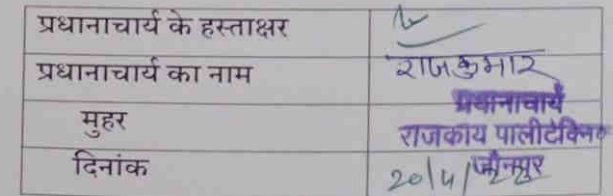 प्रधानाचार्य के हस्ताक्षर
प्रधानाचार्य का नाम राजकुमार
प्रधानाचार्य
मुहर राजकीय पालीटेक्निक
जौनपुर
दिनांक 20/4/